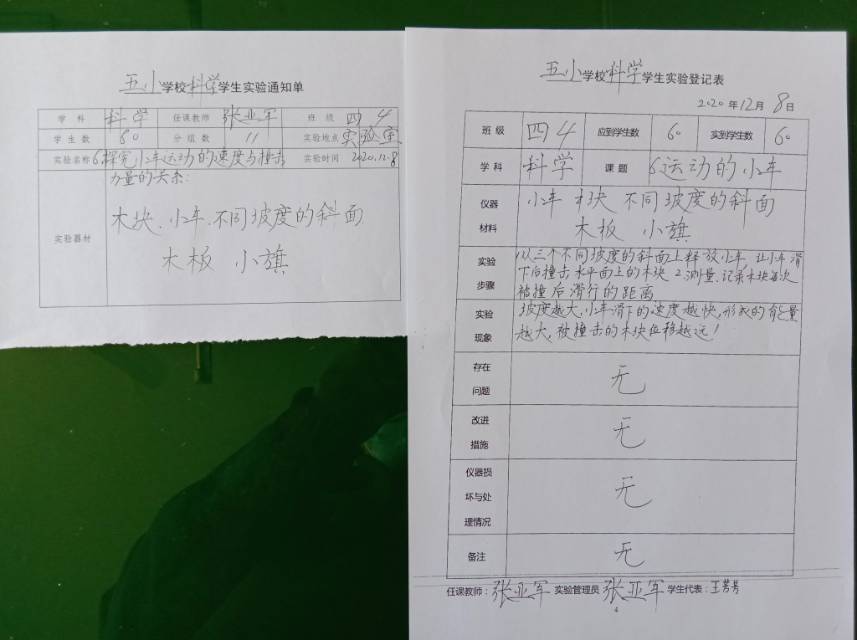 五小学校科学学生实验通知单
学科 科学 任课教师 张亚军 班级 四4
学生数 60 分组数 11 实验地点 实验室
实验名称 6探究小车运动的速度与撞击 实验时间 2020.12.8
力量的关系:
实验器材
木块、小车、不同坡度的斜面
木板 小旗
五小学校科学学生实验登记表
2020年12月8日
班级 四4 应到学生数 60 实到学生数 60
学科 科学 课题 6运动的小车
仪器材料
小车 木块 不同坡度的斜面
木板 小旗
实验步骤
1从三个不同坡度的斜面上释放小车,让小车滑
下后撞击水平面上的木块 2.测量、记录木块每次
被撞后滑行的距离
实验现象
坡度越大,小车滑下的速度越快,形成的能量
越大,被撞击的木块位移越远!
存在问题
无
改进措施
无
仪器损坏与处理情况
无
备注
无
任课教师:张亚军 实验管理员 张亚军 学生代表:王芳芳
4